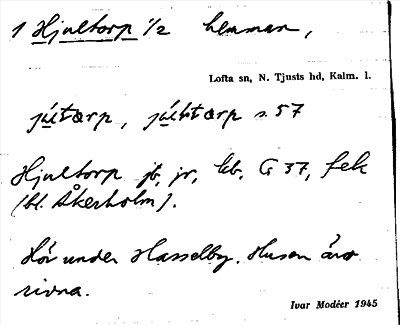 1 Hjultorp 1/2 hemman,
Lofta sn, N. Tjusts hd, Kalm. l.
júltærp, júltærp s. 57
Hjultorp jb, jr, kb, G 37, fek
(bl. Åkerholm).
Hör under Hasselby. Husen äro
rivna.
Ivar Modéer 1945